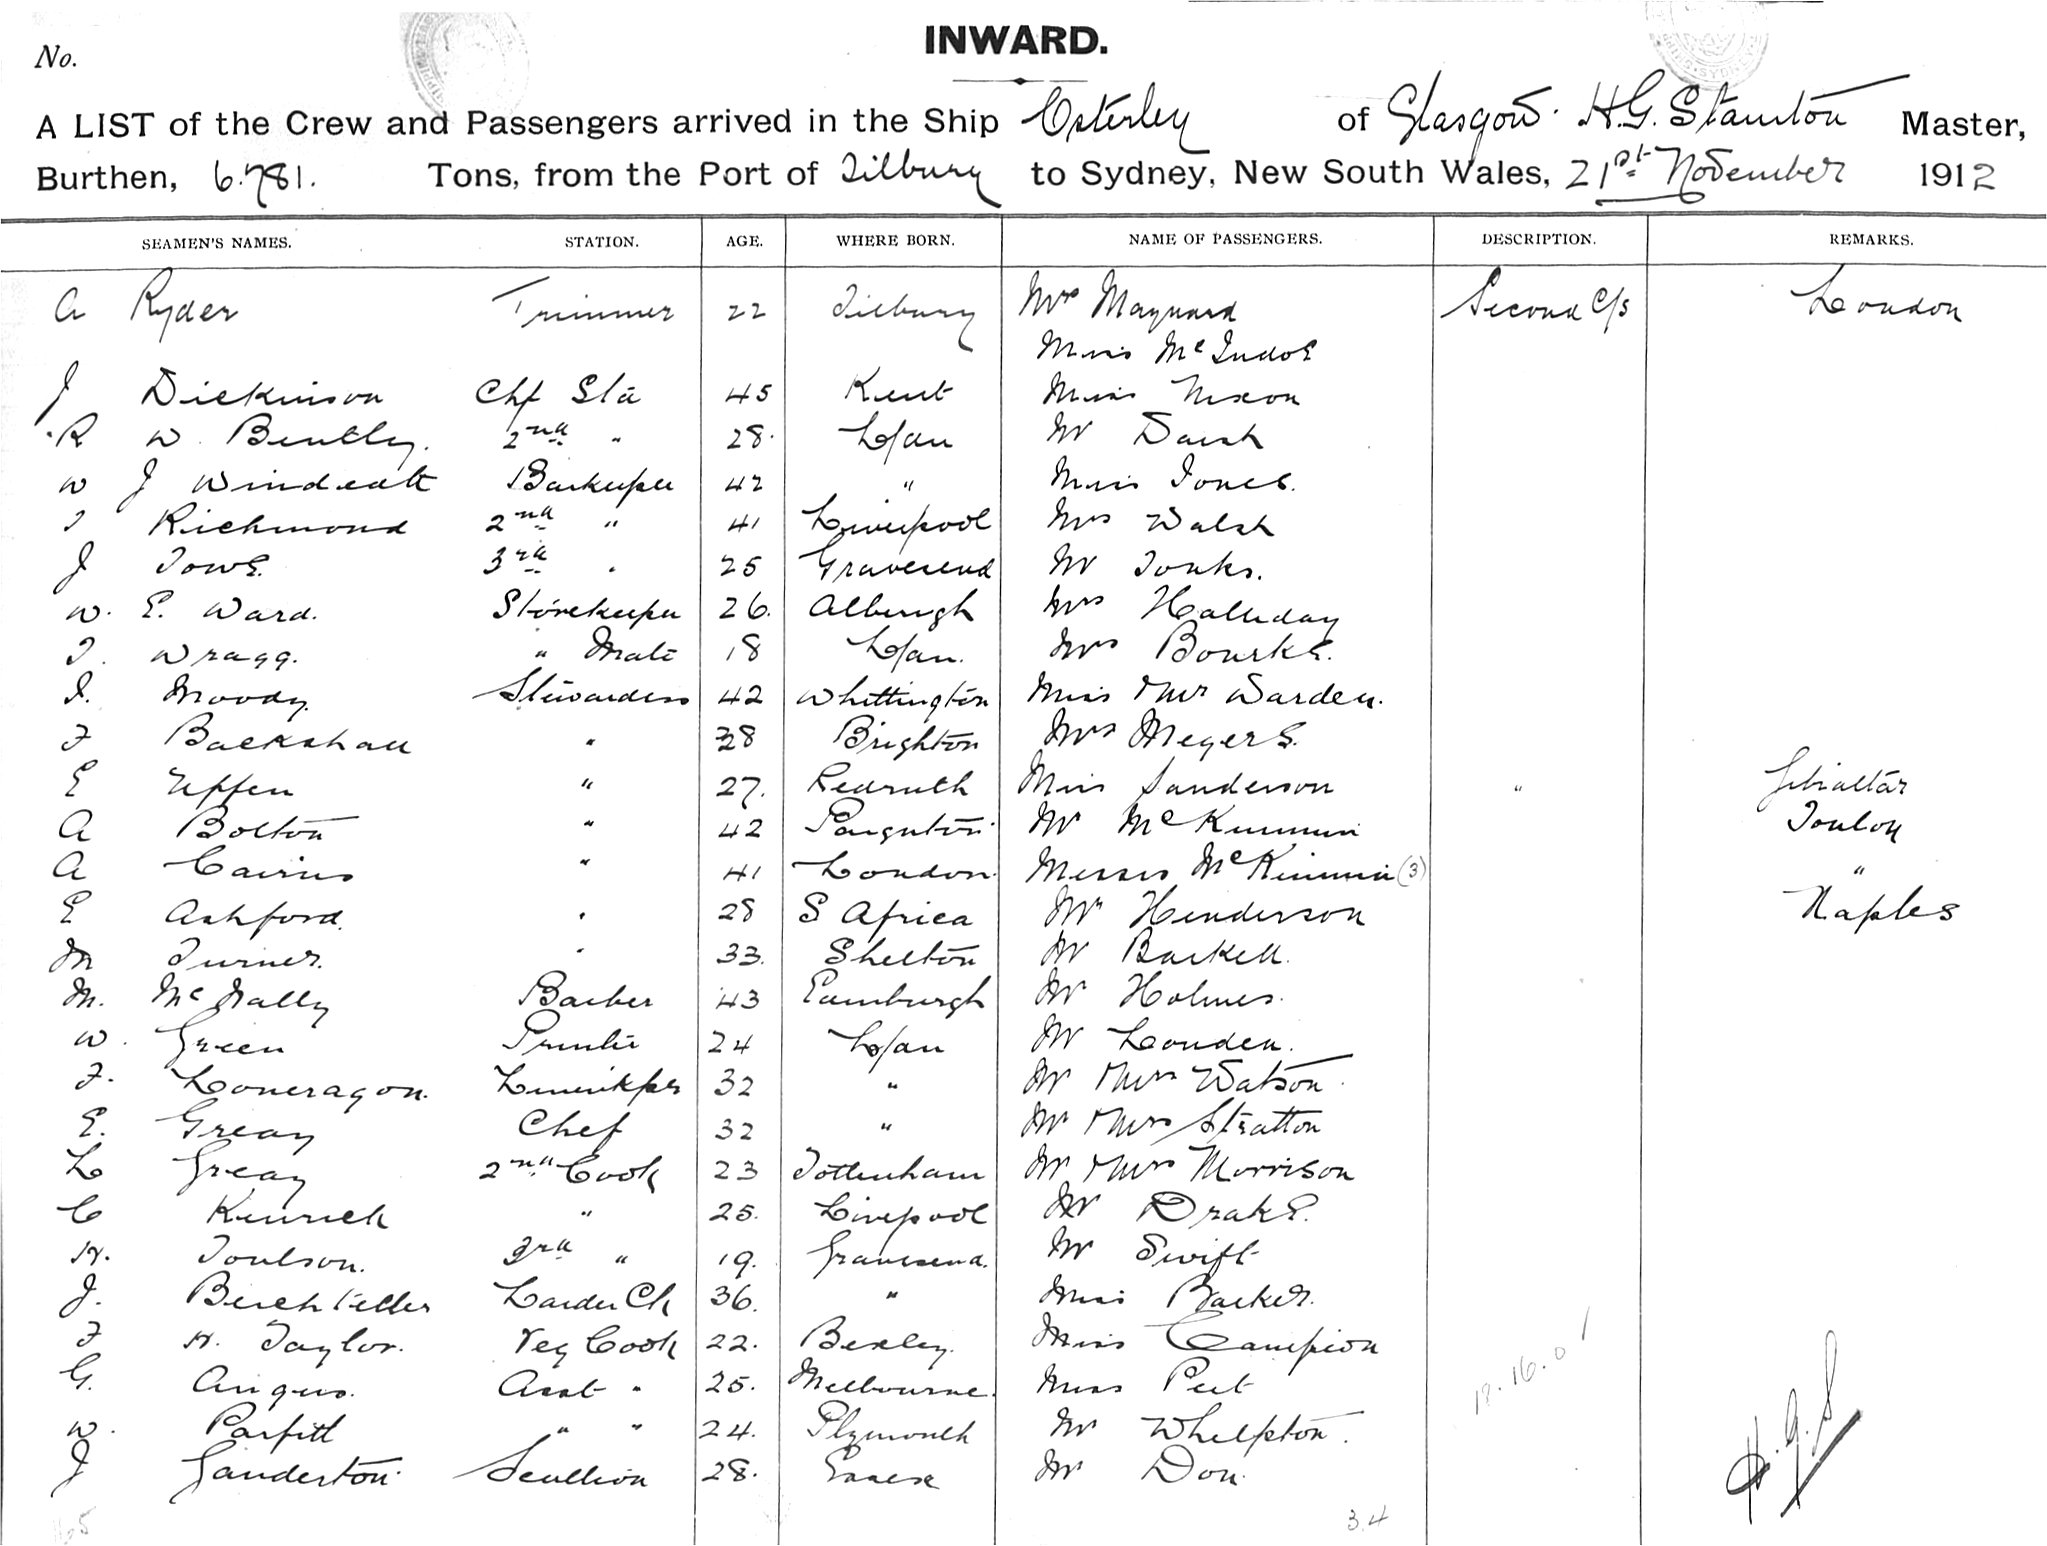 INWARD.
No.
A LIST of the Crew and Passengers arrived in the Ship Osterley of Glasgow. H.G. Staunton Master,
Burthen, 6.781. Tons, from the Port of Tilbury to Sydney, New South Wales, 21st November 1912
SEAMEN'S NAMES. STATION. AGE. WHERE BORN. NAME OF PASSENGERS. DESCRIPTION. REMARKS.
A Ryder Trimmer 22 Tilbury Mrs Maynard Second C/s London
Miss McIndoe
J Dickinson Chf Std 45 Kent Miss Nixon
R W. Bentley. 2nd " 28. L/dn Mr Daish
W J Windeatt Barkeeper 42 " Miss Jones.
T Richmond 2nd " 41 Liverpool Mrs Walsh
J Towe. 3rd " 25 Gravesend Mr Tonks.
W. E. Ward. Storekeeper 26. Alburgh Mrs Halliday
T. Wragg. " Mate 18 L/dn. Mrs Bourke.
I. Moody. Stewardess 42 Whittington Miss & Mr Warden.
F Backshall " 38 Brighton Mrs Meyers.
E Uffen " 27. Redruth Miss Sanderson " Gibraltar
A Bolton " 42 Paignton Mr McKimmin Toulon
A Cairns " 41 London. Messrs McKimmin (3) "
E Ashford. " 28 S Africa Mr Henderson Naples
M Turner. " 33. Shelton Mr Barkell.
M. McNally Barber 43 Edinburgh Mr Holmes.
W. Green Printer 24 L/dn Mr Louden.
F. Loneragon. Linenkpr 32 " Mr & Mrs Watson.
E. Greay Chef 32 " Mr & Mrs Stratton
L Greay 2nd Cook 23 Tottenham Mr & Mrs Morrison
C Kenrick " 25. Liverpool Mr Drake.
H. Toulson. 3rd " 19. Gravesend. Mr Swift
J. Beichteller Larder Ck 36. " Miss Barker.
F H. Taylor. Veg Cook 22. Bexley. Miss Campion
G. Angus. Asst " 25. Melbourne. Miss Peet
W. Parfitt " " 24. Plymouth Mr Whelpton.
J Ganderton. Scullion 28. Essex Mr Don.
18.16.0
H.G.S
34